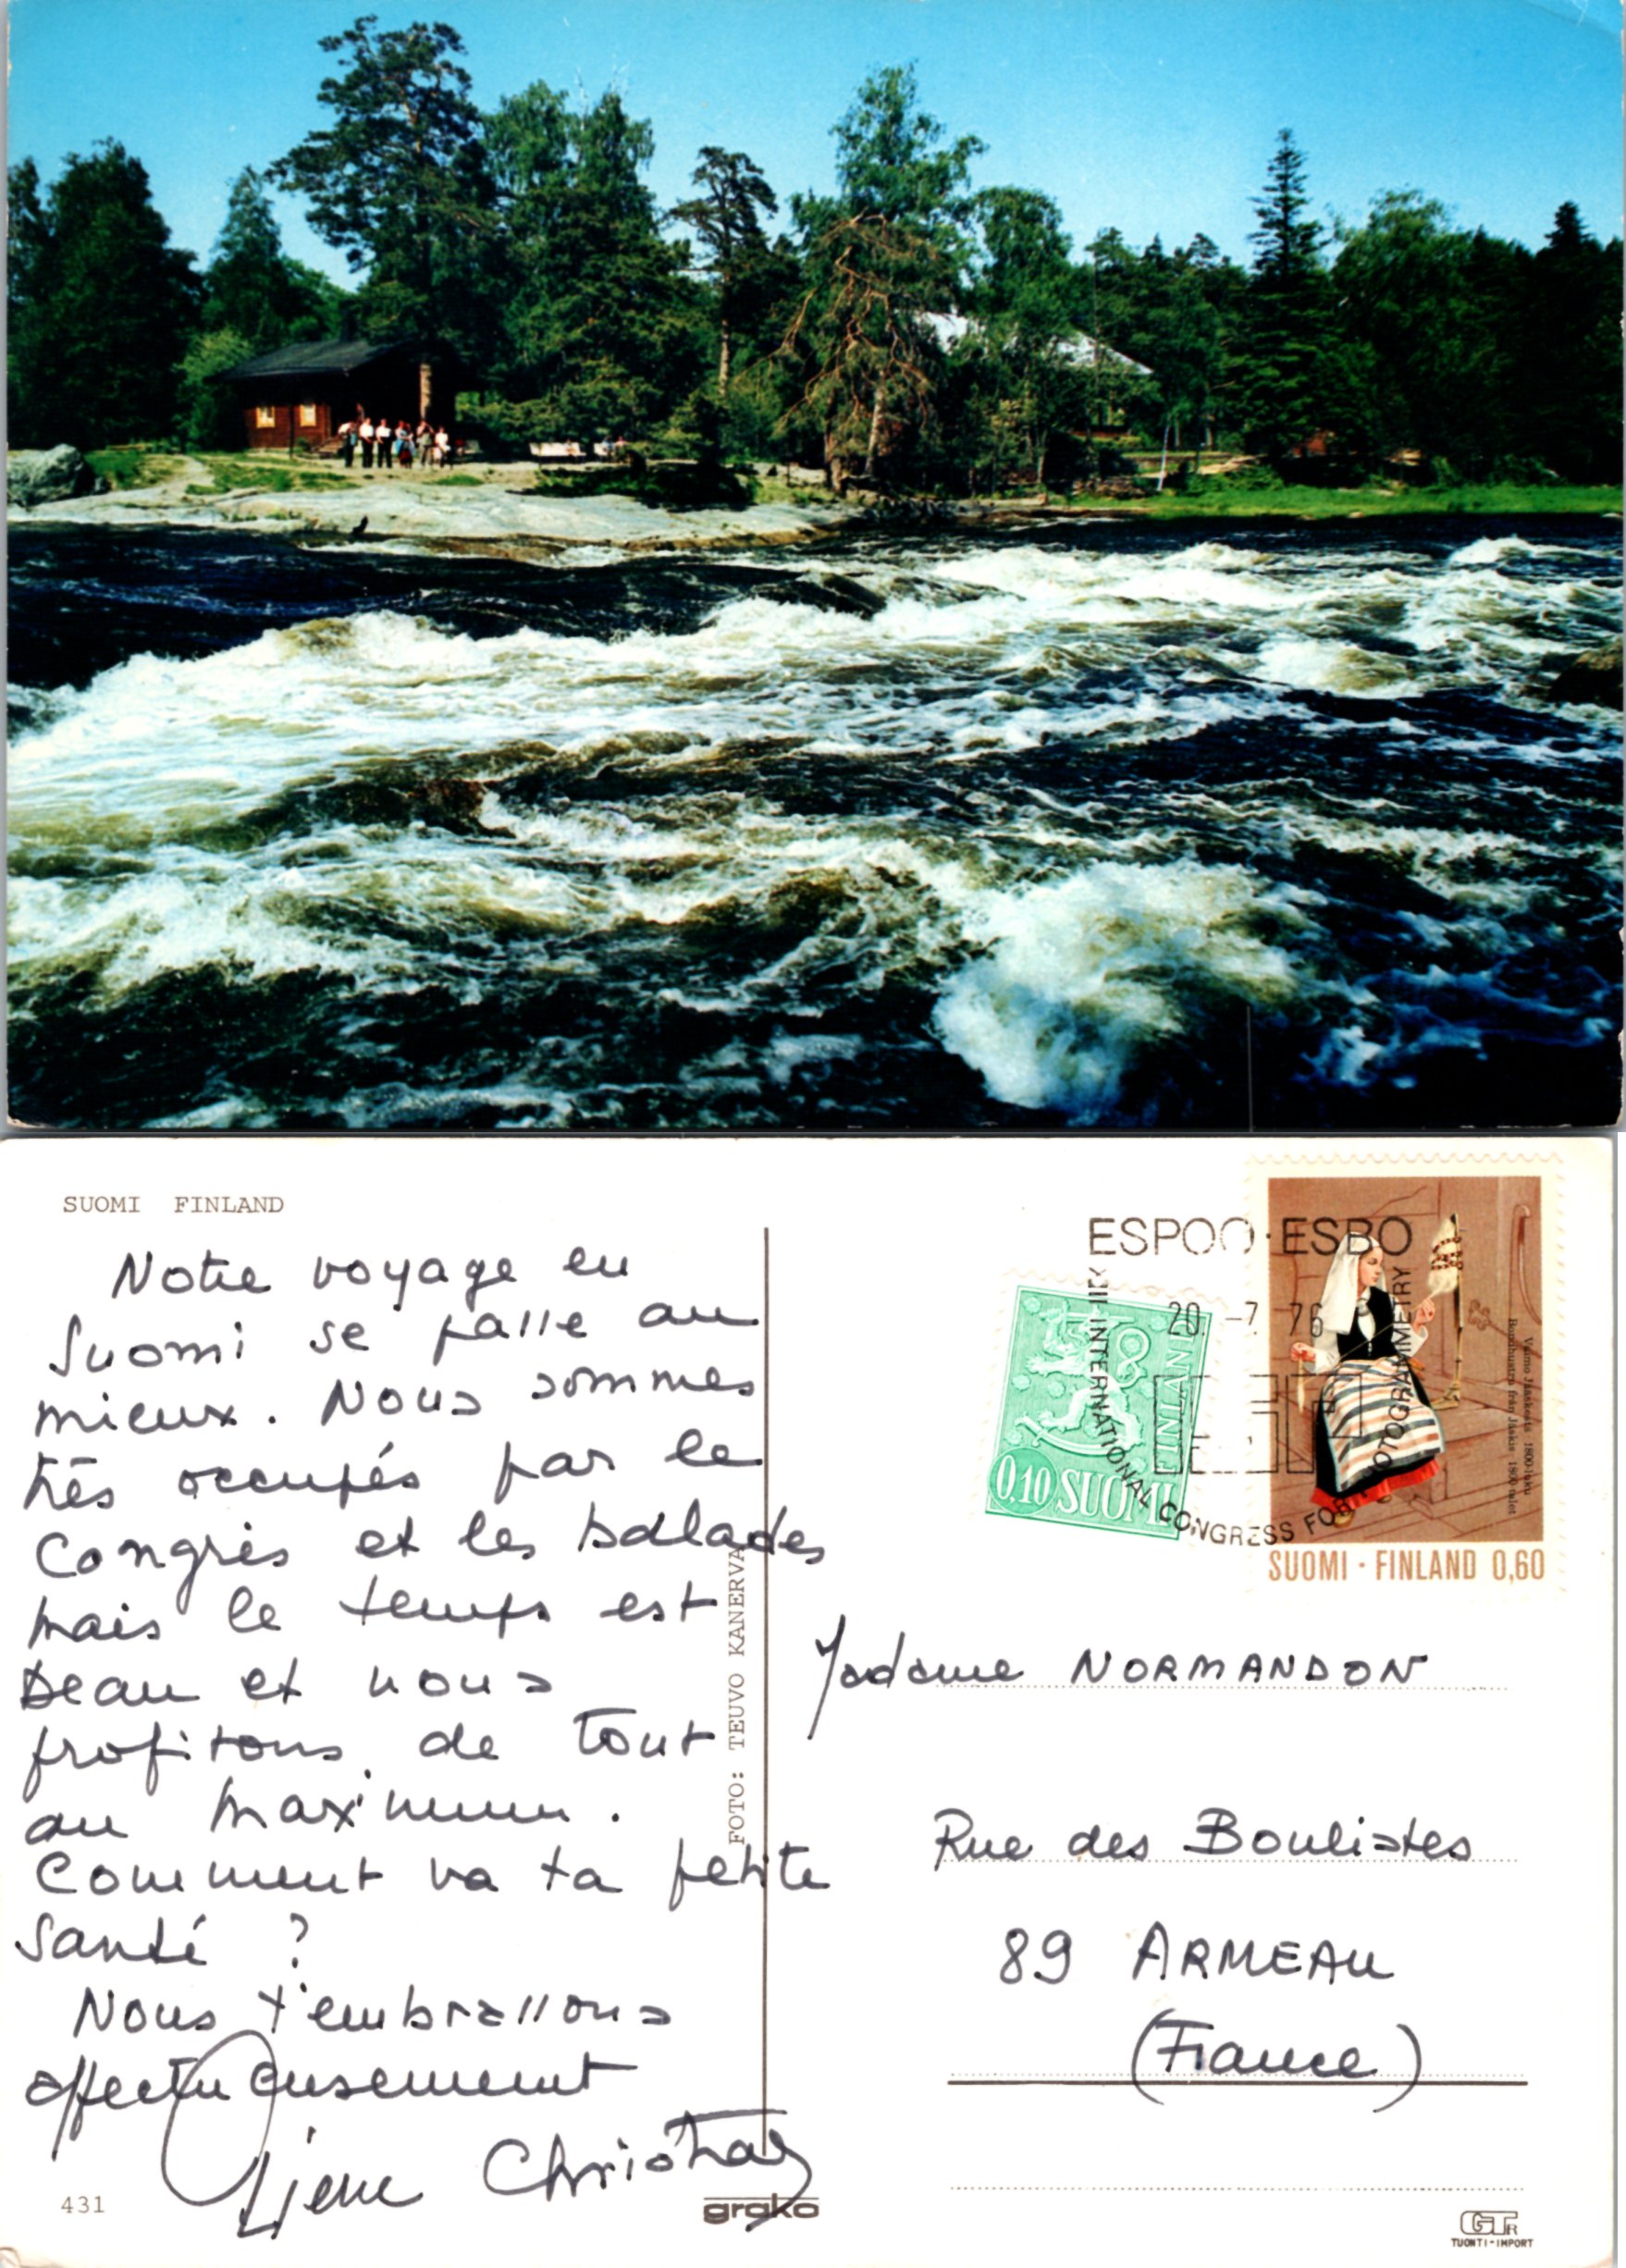 SUOMI FINLAND
Notre voyage en
Suomi se passe au
mieux. Nous sommes
très occupés par le
Congrès et les balades
mais le temps est
beau et nous
profitons de tout
au maximum.
Comment va ta petite
santé ?
Nous t'embrassons
affectueusement
Christian
431
FOTO: TEUVO KANERVA
grako
ESPOO · ESBO
20. -7. 76
XIII INTERNATIONAL CONGRESS FOR PHOTOGRAMMETRY
FINLAND
0,10 SUOMI
Vaimo Jääskestä 1800-luku
Bondhustru från Jääskis 1800-talet
SUOMI · FINLAND 0,60
Madame NORMANDON
Rue des Boulistes
89 ARMEAU
(France)
GTR
TUONTI-IMPORT